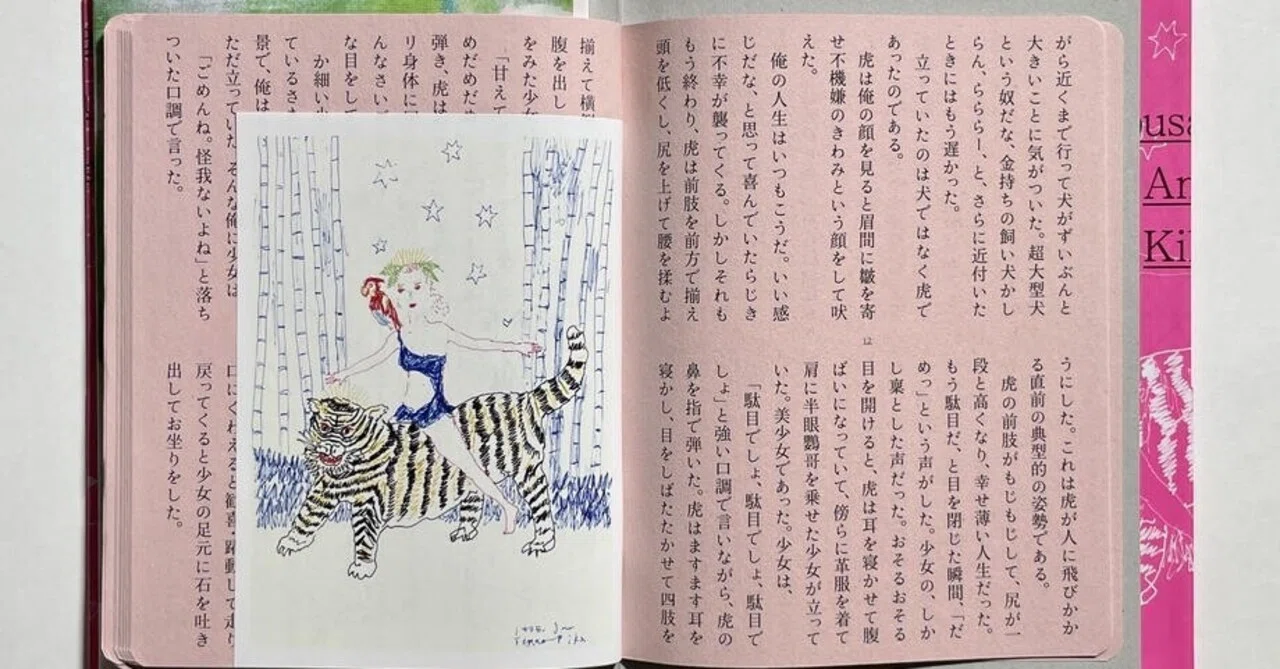 がら近くまで行って犬がずいぶんと
大きいことに気がついた。超大型犬
という奴だな、金持ちの飼い犬かし
らん、らららー、と、さらに近付いた
ときにはもう遅かった。
立っていたのは犬ではなく虎で
あったのである。
虎は俺の顔を見ると眉間に皺を寄
せ不機嫌のきわみという顔をして吠
えた。
俺の人生はいつもこうだ。いい感
じだな、と思って喜んでいたらじき
に不幸が襲ってくる。しかしそれも
もう終わり、虎は前肢を前方で揃え
頭を低くし、尻を上げて腰を揉むよ
うにした。これは虎が人に飛びかか
る直前の典型的の姿勢である。
虎の前肢がもじもじして、尻が一
段と高くなり、幸せ薄い人生だった。
もう駄目だ、と目を閉じた瞬間、「だ
めっ」という声がした。少女の、しか
し凛とした声だった。おそるおそる
目を開けると、虎は耳を寝かせて腹
ばいになっていて、傍らに革服を着て
肩に半眼鸚哥を乗せた少女が立って
いた。美少女であった。少女は、
「駄目でしょ、駄目でしょ、駄目で
しょ」と強い口調で言いながら、虎の
鼻を指で弾いた。虎はますます耳を
寝かし、目をしばたたかせて四肢を
12
揃えて横
腹を出し
をみた少女
「甘えて
めだめだめ
弾き、虎は
リ身体に
んなさい
な目をして
か細い
ているさ
景で、俺は
ただ立っていた。そんな俺に少女は
「ごめんね。怪我ないよね」と落ち
ついた口調で言った。
口にくわえると歓喜・踊動して走り
戻ってくると少女の足元に石を吐き
出してお坐りをした。
ousa
An
Ki